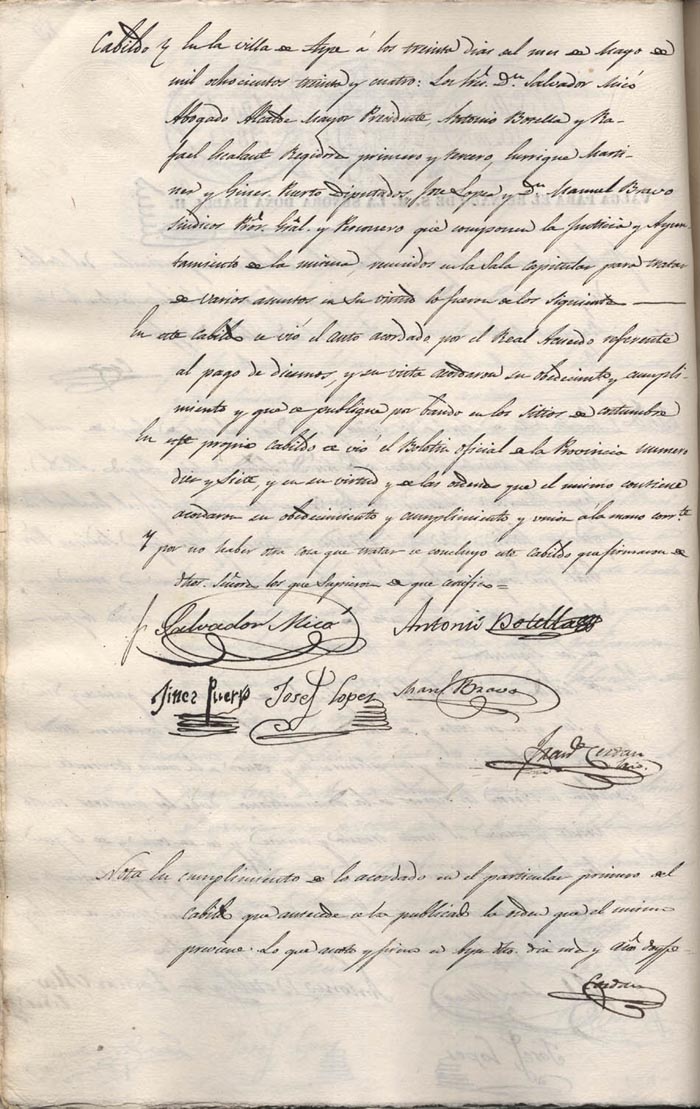 Cabildo Y En la villa de Aspe á los treinta dias del mes de Mayo de
mil ochocientos treinta y cuatro: Los Sres. Dn. Salvador Micó
Abogado Alcalde Mayor Presidente, Antonio Botella y Ra-
fael Escalant Regidores primero y tercero, Enrrique Marti-
nez y Gines Puerto Diputados, Jose Lopez y Dn. Manuel Bravo
Sindicos Pror. Gral. y Personero que componen la Justicia y Ayun-
tamiento de la misma reunidos en la Sala capitular para tratar
de varios asuntos en su virtud lo fueron de los siguientes
En este Cabildo se vió el auto acordado por el Real Acuerdo referente
al pago de diezmos, y su vista acordaron su obedecimto. y cumpli-
miento y que se publique por bando en los Sitios de costumbre
En este propio Cabildo se vió el Boletin oficial de la Provincia numero
diez y Siete, y en su virtud y de las ordenes que el mismo contiene
acordaron su obedecimiento y cumplimiento y unir á la mano corrte.
Y por no haber otra cosa que tratar se concluyó este Cabildo que firmaron de
dhos. Señores los que Supieron de que certifico=
Salvador Micó Antonio Botella
Jines Puerto Josef Lopez Manl. Bravo
Franco. Cerdan
Srio.
Nota En cumplimiento de lo acordado en el particular primero del
Cabildo que antecede se ha publicado la orden que el mismo
previene. Lo que anoto y firmo en Aspe dho. dia mes y año
Cerdan
VALGA PARA EL REYNADO DE S.M. LA SEÑORA DOÑA ISABEL II.